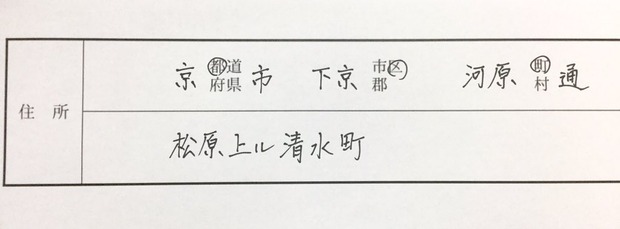 住所
京 都道府県 市 下京 市区郡 河原 町村 通
松原上ル清水町